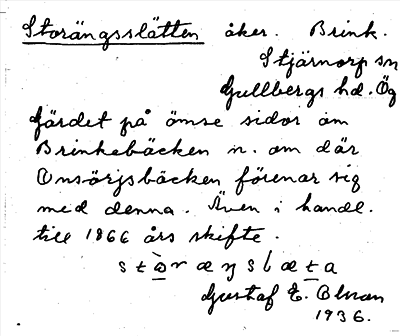 Storängsslätten åker. Brink.
Stjärnorp sn
Gullbergs hd. Ög
Gärdet på ömse sidor om
Brinkebäcken n. om där
Onsörjsbäcken förenar sig
med denna. Även i handl.
till 1866 års skifte.
s t ò r æ ŋ s l æ t a
Gustaf E. Olsson
1936.